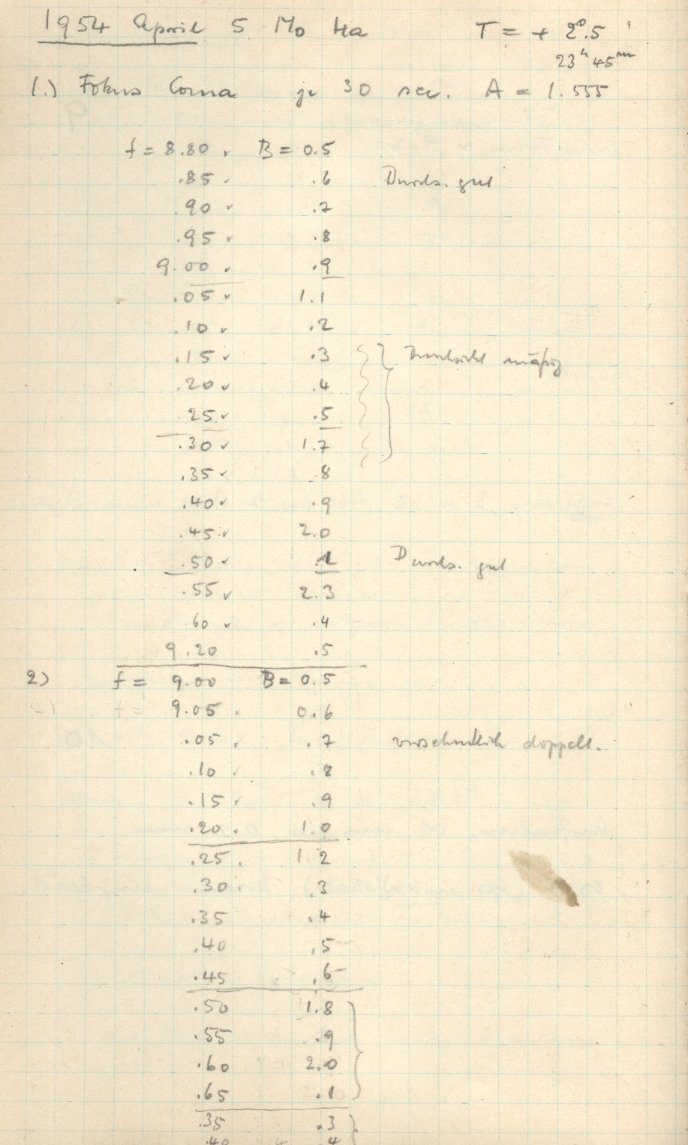 1954 April 5 Mo Ha T = + 2°.5
23h 45m
1.) Fokus Coma je 30 sec. A = 1.555
f = 8.80 v B = 0.5
.85 v .6 Durchs. gut
.90 v .7
.95 v .8
9.00 v .9
.05 v 1.1
.10 v .2
.15 v .3 Durchsicht mäßig
.20 v .4
.25 v .5
.30 v 1.7
.35 v .8
.40 v .9
.45 v 2.0
.50 v .1 Durchs. gut
.55 v 2.3
.60 v .4
9.20 .5
2) f = 9.00 B = 0.5
9.05 . 0.6
.05 v .7 versehentlich doppelt.
.10 v .8
.15 v .9
.20 . 1.0
.25 . 1.2
.30 .3
.35 .4
.40 .5
.45 .6
.50 1.8
.55 .9
.60 2.0
.65 .1
.35 .3
.40 .4